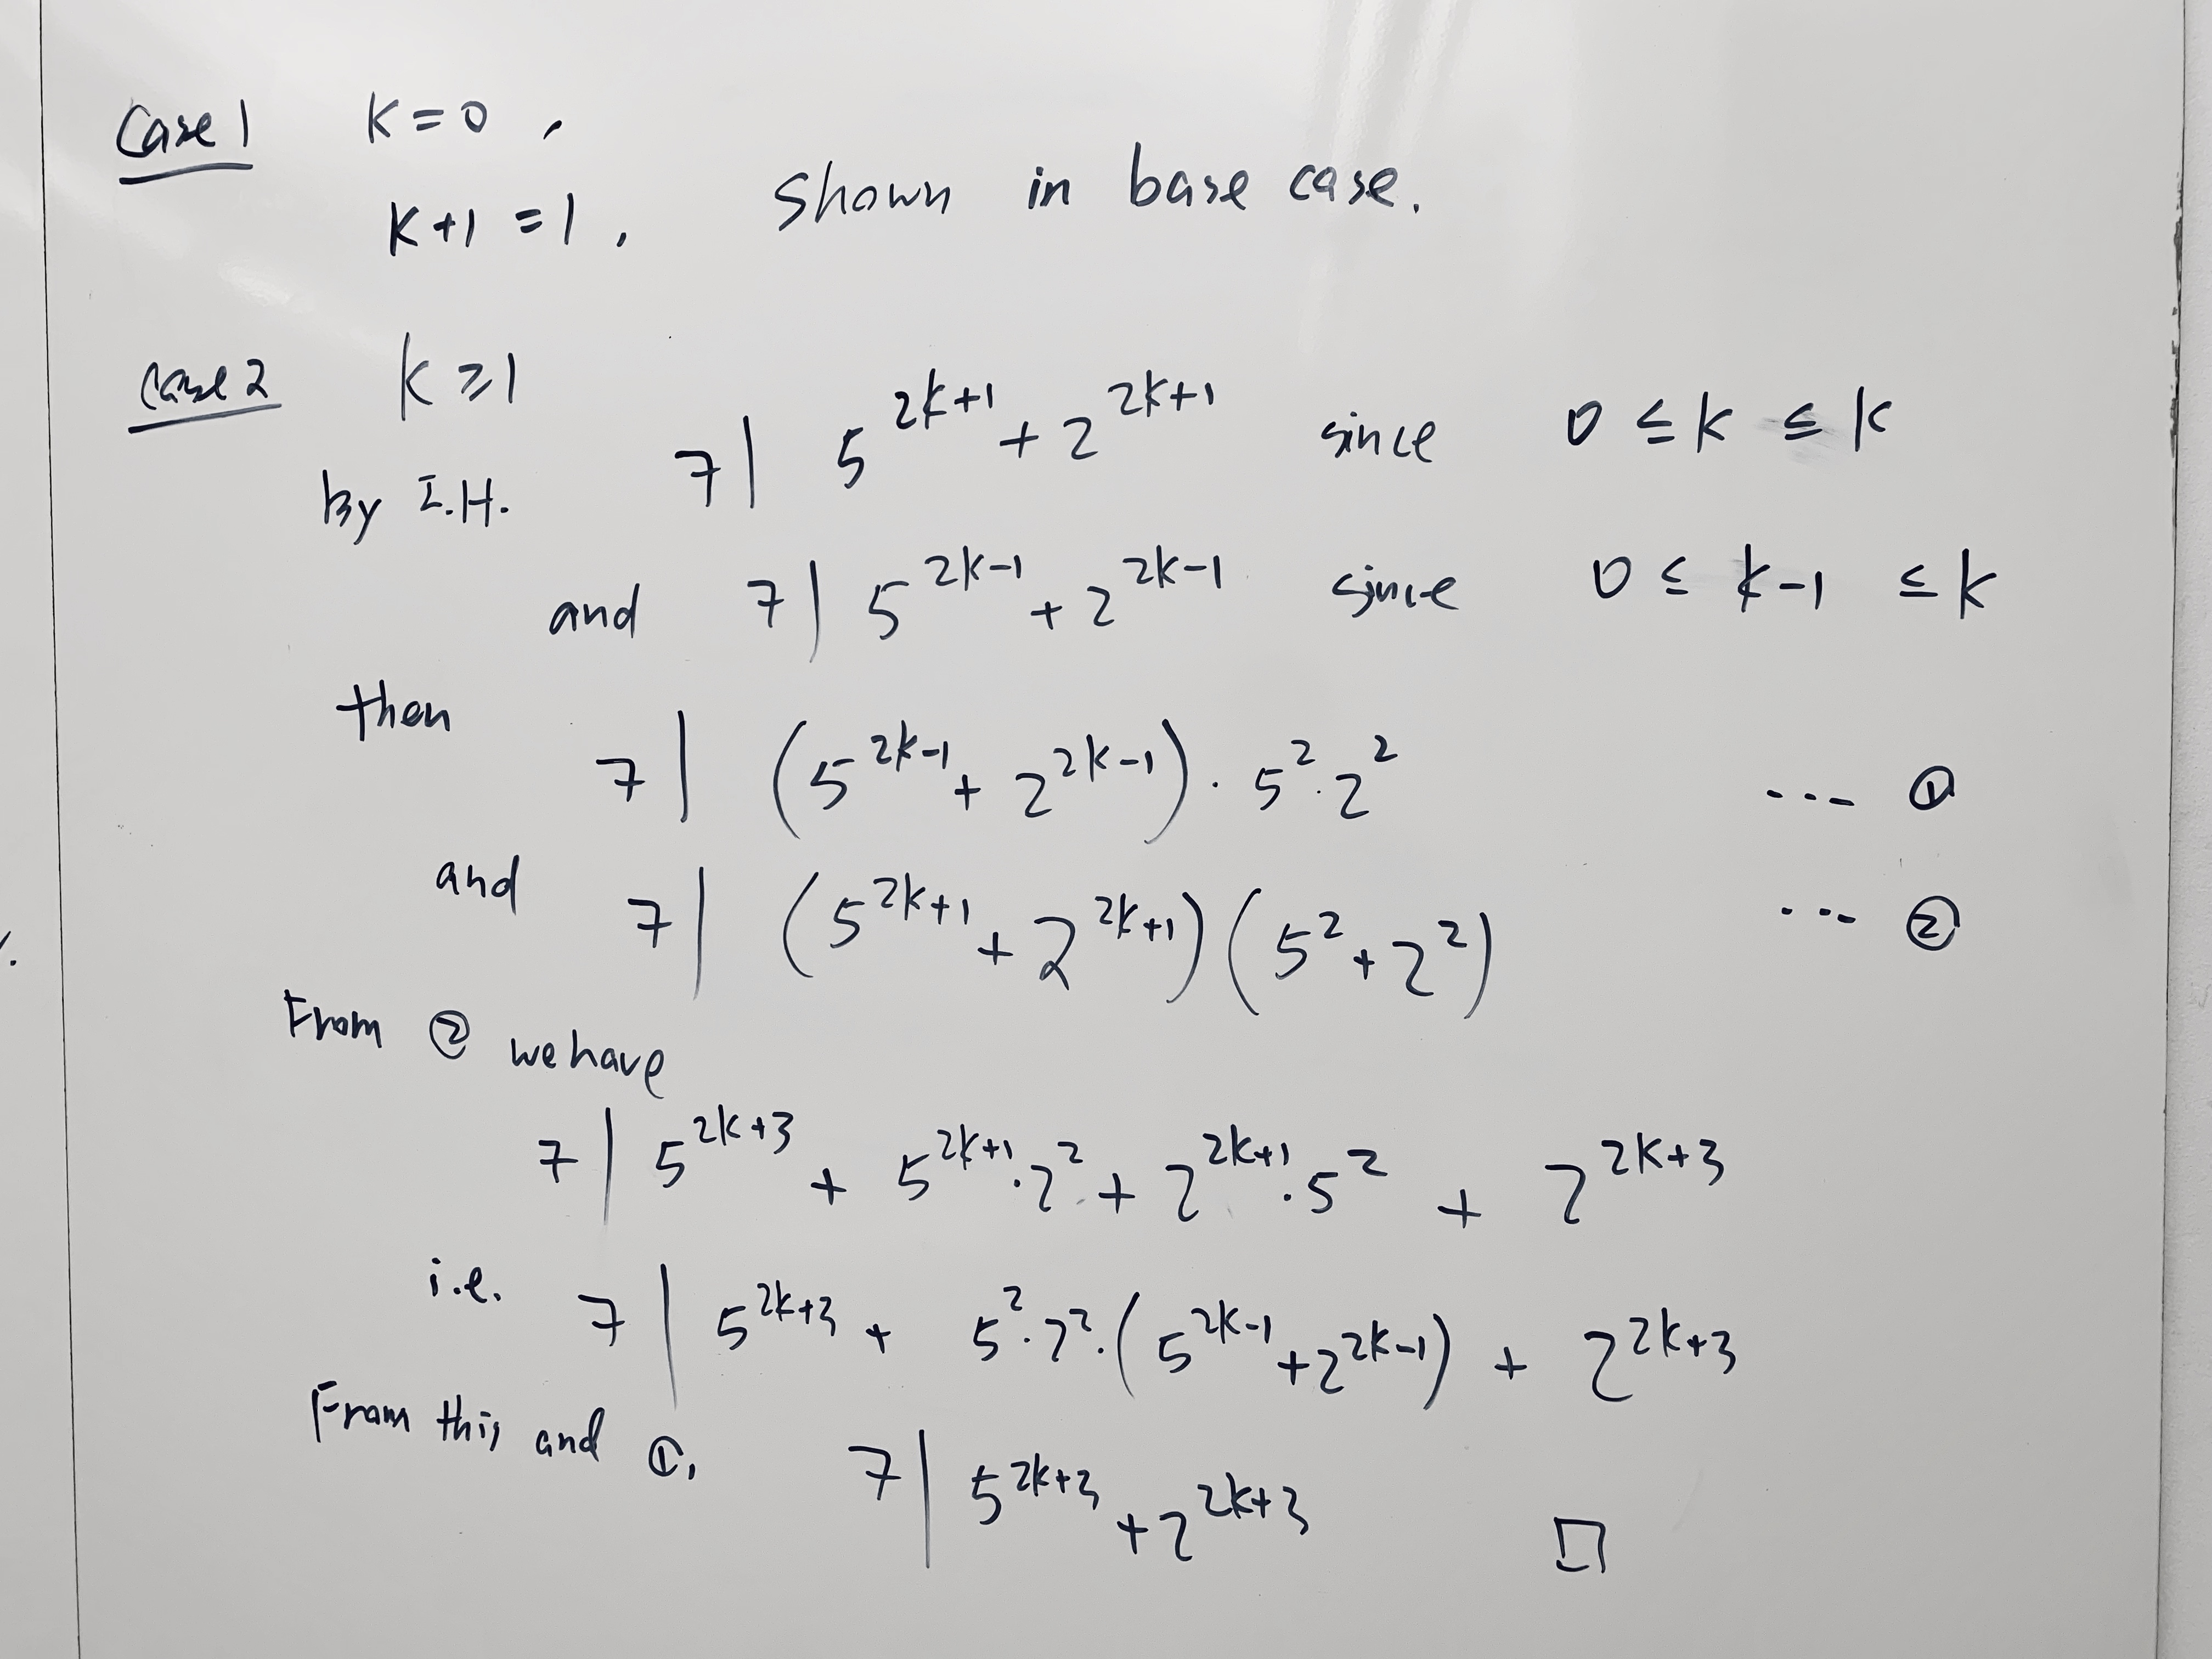 Case 1 K=0,
K+1 =1, Shown in base case.
Case 2 K ≥1
by I.H. 7 | 5^{2k+1} + 2^{2k+1} since 0 ≤ k ≤ k
and 7 | 5^{2k-1} + 2^{2k-1} since 0 ≤ k-1 ≤ k
then 7 | (5^{2k-1} + 2^{2k-1}) · 5^2 · 2^2 --- ①
and 7 | (5^{2k+1} + 2^{2k+1}) (5^2 + 2^2) --- ②
From ② we have
7 | 5^{2k+3} + 5^{2k+1} · 2^2 + 2^{2k+1} · 5^2 + 2^{2k+3}
i.e. 7 | 5^{2k+3} + 5^2 · 2^2 · (5^{2k-1} + 2^{2k-1}) + 2^{2k+3}
From this and ①, 7 | 5^{2k+3} + 2^{2k+3} □